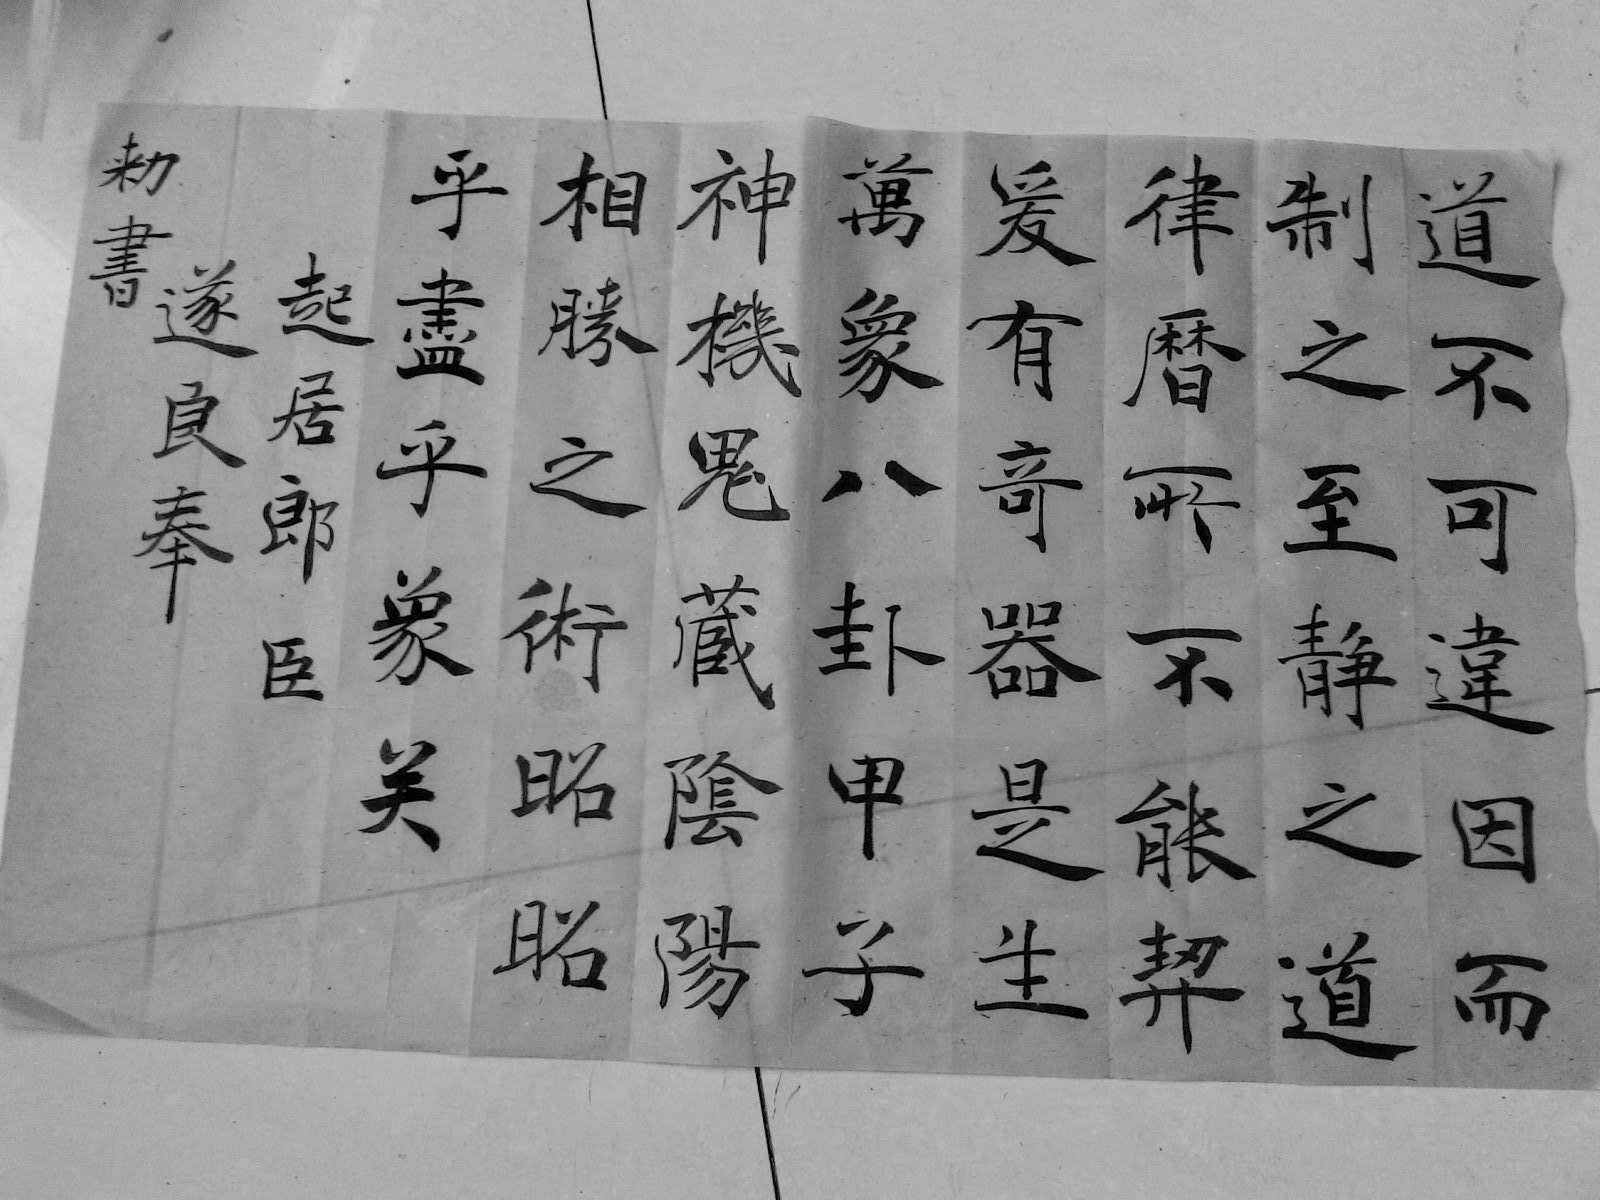 道不可違因而
制之至静之道
律暦所不能契
爰有奇器是生
萬象八卦甲子
神機鬼蔵陰陽
相勝之術昭昭
乎盡乎象矣
起居郎臣
遂良奉
勅書